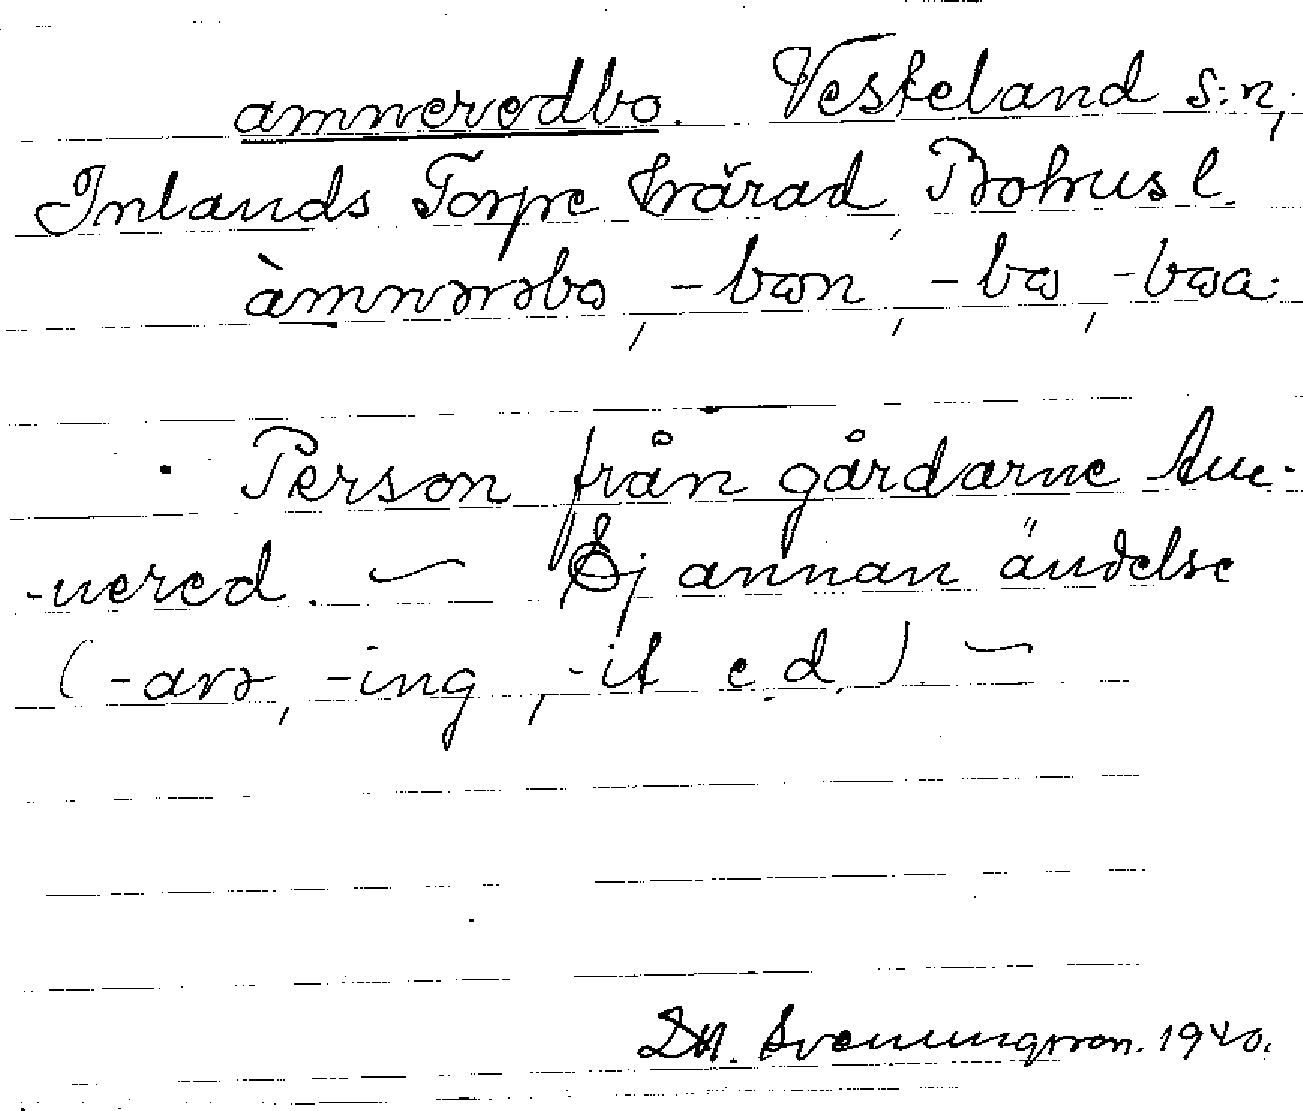 ammeredbo. Vesterland s:n,
Inlands Torpe härad, Bohusl.
àmmnərəbo, -bon, -bo, -boa.
Person från gårdarne Am-
-nered. — Ej annan ändelse
(-arə, -ing, -it e.d.) —
Svenningsson. 1940.